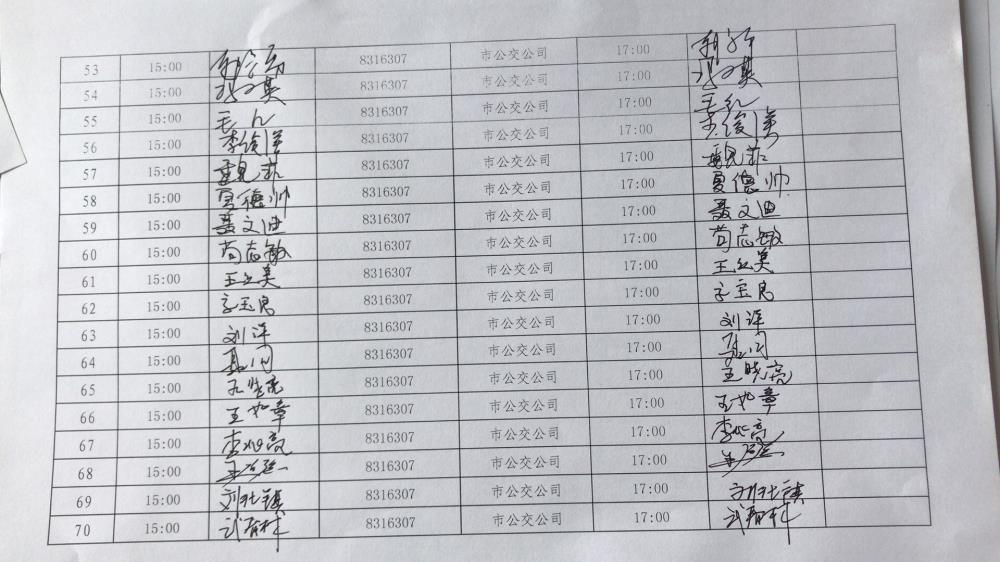 53 15:00 8316307 市公交公司 17:00
54 15:00 8316307 市公交公司 17:00
55 15:00 8316307 市公交公司 17:00
56 15:00 李俊 8316307 市公交公司 17:00 李俊
57 15:00 魏 8316307 市公交公司 17:00 魏
58 15:00 夏德帅 8316307 市公交公司 17:00 夏德帅
59 15:00 聂文迪 8316307 市公交公司 17:00 聂文迪
60 15:00 苟志敏 8316307 市公交公司 17:00 苟志敏
61 15:00 王 美 8316307 市公交公司 17:00 王 美
62 15:00 8316307 市公交公司 17:00
63 15:00 刘洋 8316307 市公交公司 17:00 刘洋
64 15:00 8316307 市公交公司 17:00
65 15:00 8316307 市公交公司 17:00 王晓亮
66 15:00 王如章 8316307 市公交公司 17:00 王如章
67 15:00 李 亮 8316307 市公交公司 17:00 李 亮
68 15:00 8316307 市公交公司 17:00
69 15:00 刘 8316307 市公交公司 17:00 刘
70 15:00 武 科 8316307 市公交公司 17:00 武 科